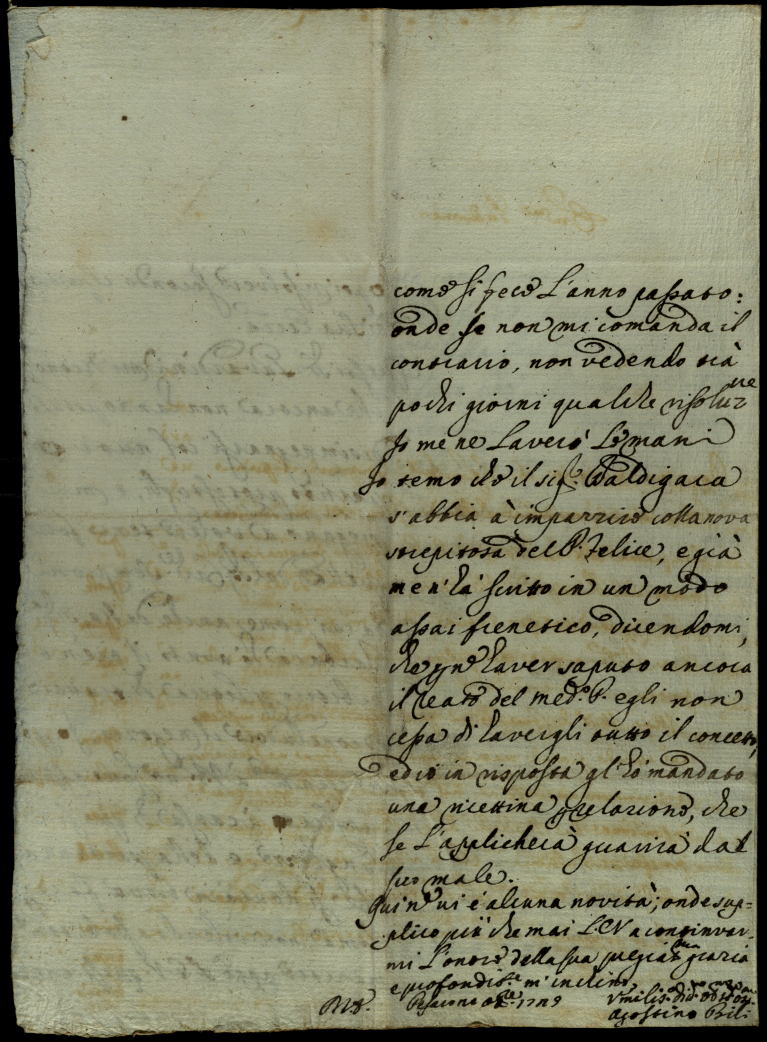 come si fece l'anno passato:
onde se non mi comanda il
contrario, non vedendo trà
pochi giorni qualche risoluz.ne
Io me ne laverò le mani
Io temo che il sig.r Baldigara
s'abbia à impazzire colla nova
strepitosa del P. Felice, e già
me n'hà scritto in un modo
assai frenetico, dicendomi,
che p non haver saputo ancora
il reato del med.o P. egli non
cessa di havergli tutto il concetto,
ed io in risposta gl'hò mandato
una ricettina p relazione, che
se l'applicherà guarirà dal
suo male.
Qui n vi è alcuna novità; onde sup=
plico più che mai a continuar=
mi l'onore della sua pregiat.ma grazia
e profondis.te m'inchino
Umilis.o
Agostino